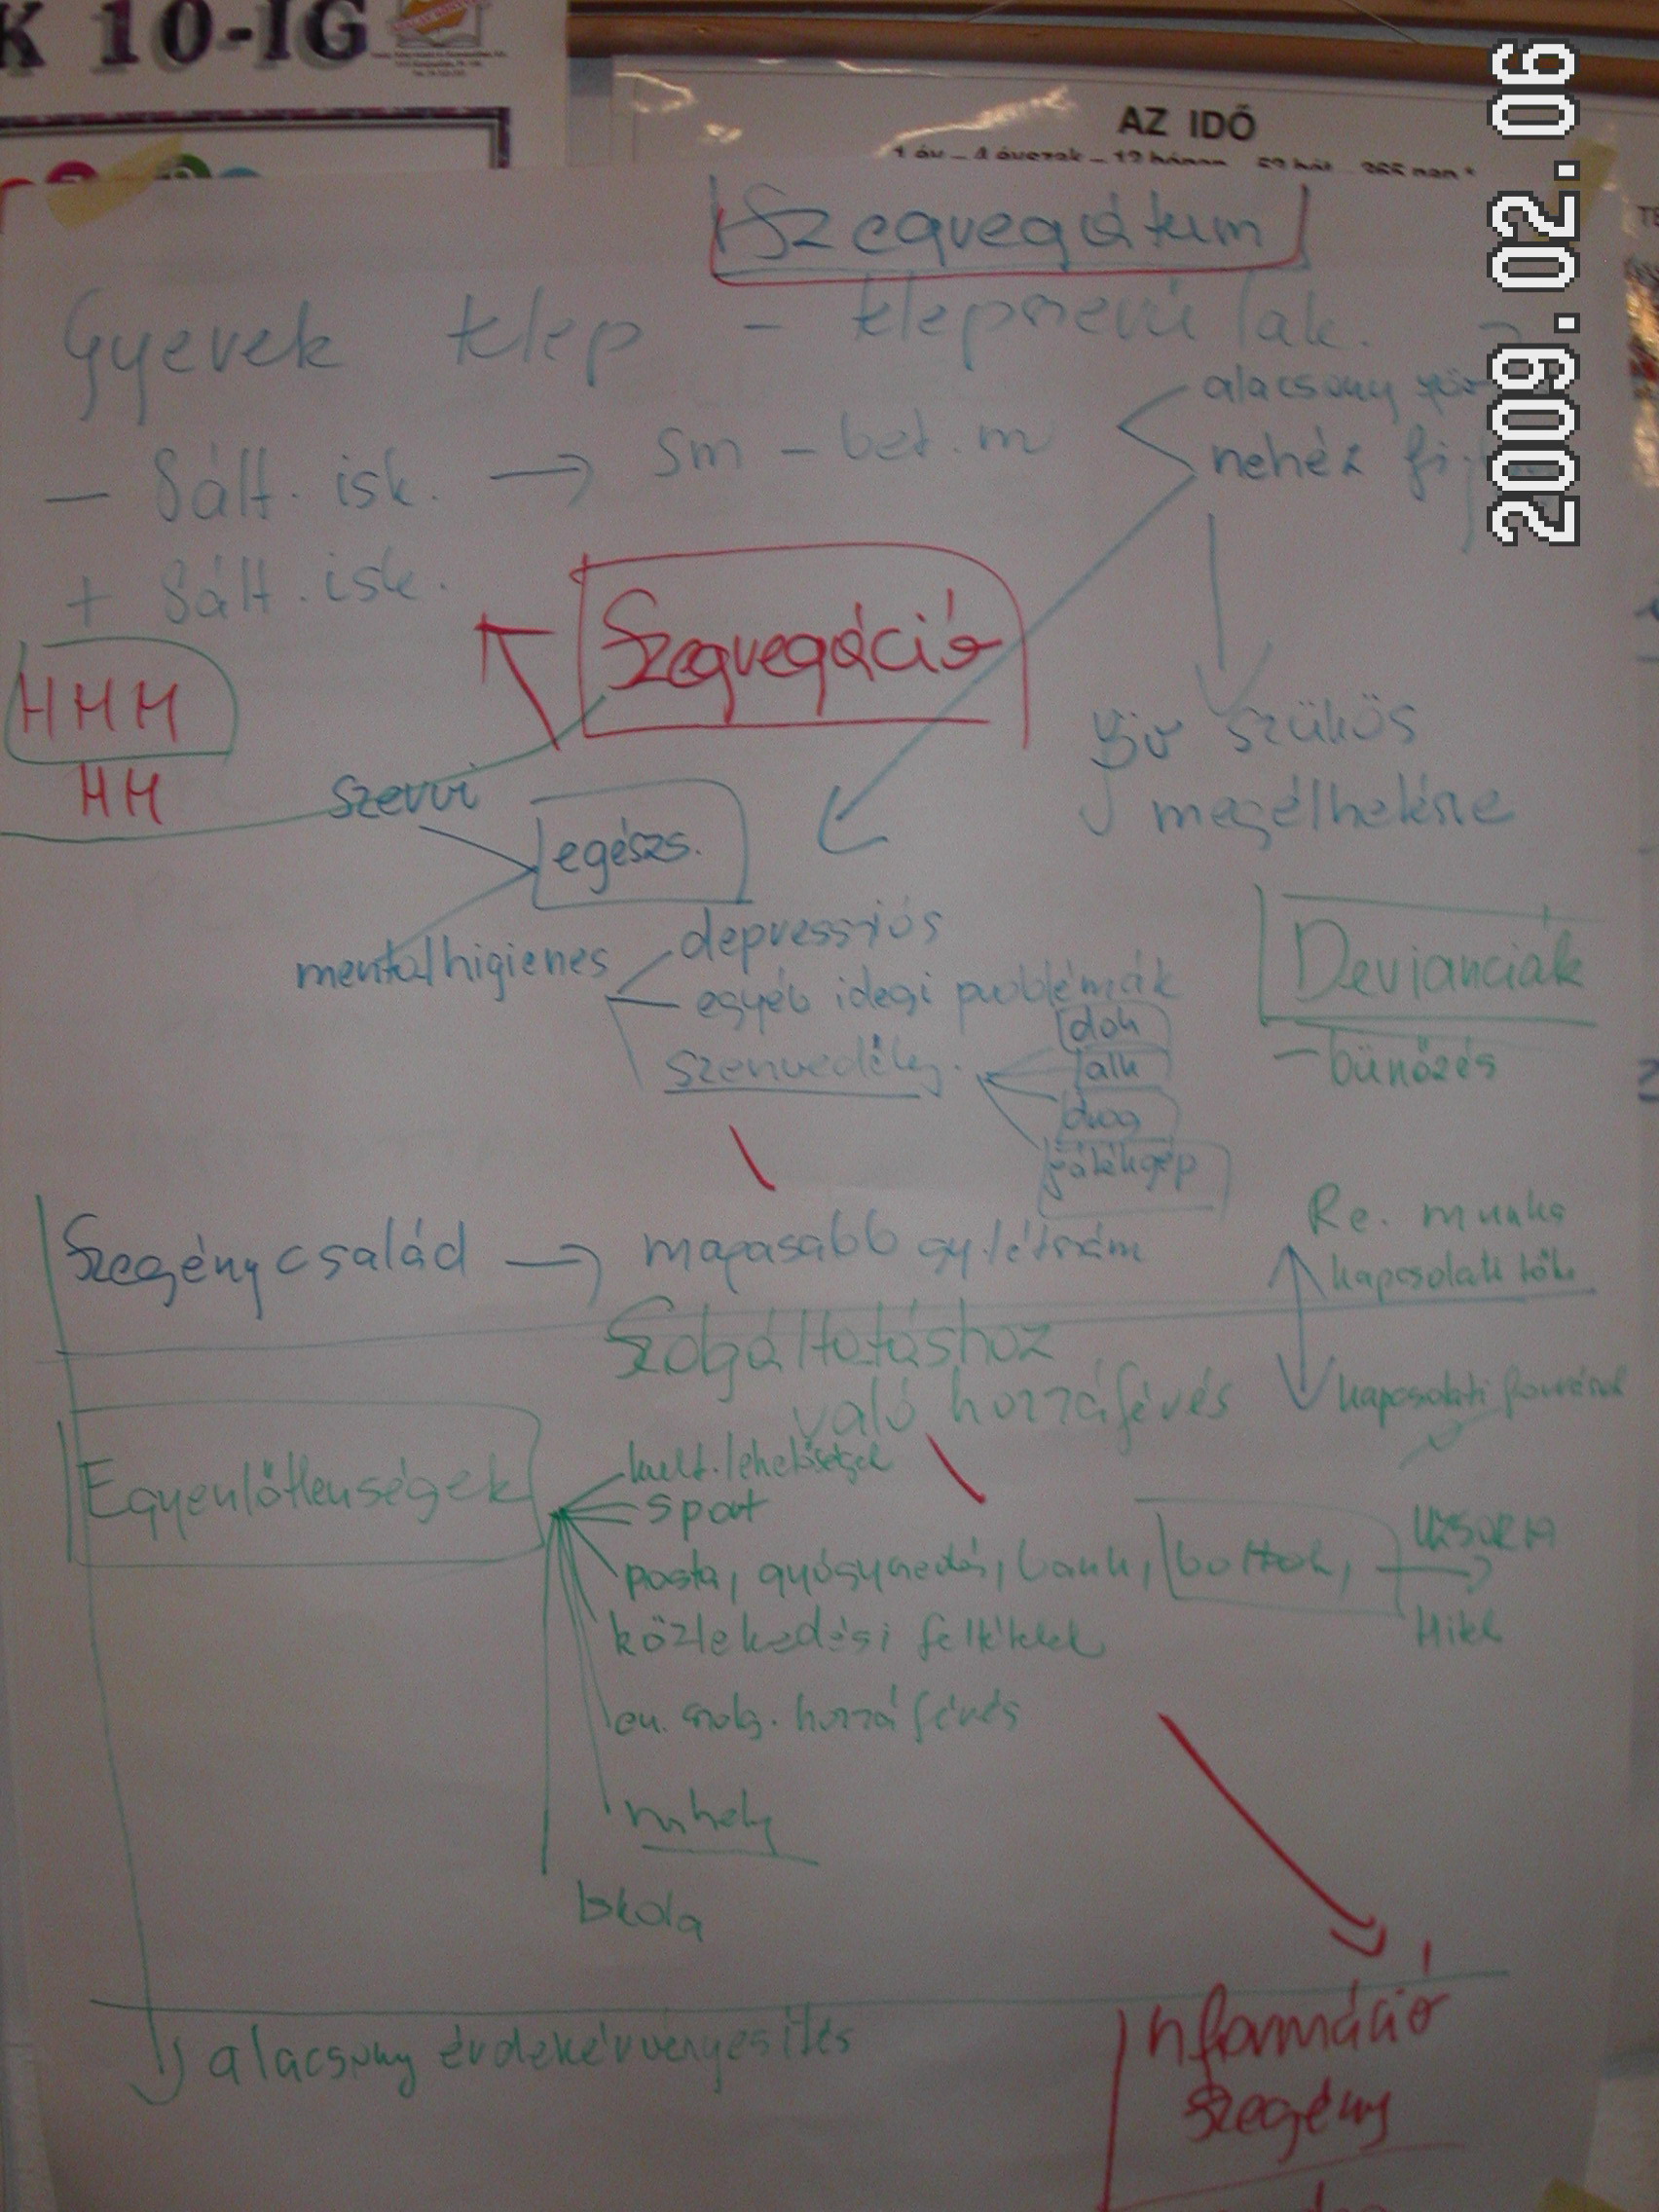 K 10-IG
AZ IDŐ
1 év – 4 évszak – 12 hónap 52 hét 365 nap
2009.02.06
Szegregátum
Gyerek telep - telepszerű lak.
alacsony
nehéz
- 8ált. isk. → sm - bet. m
+ 8ált. isk.
Szegregáció
HHH
HH
szűkös
megélhetésre
szervi
egészs.
mentálhigienes
depressziós
egyéb idegi problémák
szenvedély.
doh
alk
drog
játékgép
Deviánciák
- bűnözés
Szegény család → magasabb gy. létszám
Re. munka
kapcsolati tők.
kapcsolati
Szolgáltatáshoz
való hozzáférés
Egyenlőtlenségek
kult. lehetőségek
sport
posta, gyógyszer, bank, boltok, → UZSORA
Hitel
közlekedési feltételek
eü. szolg. hozzáférés
mhely
Iskola
alacsony érdekérvényesítés
Információ
szegény